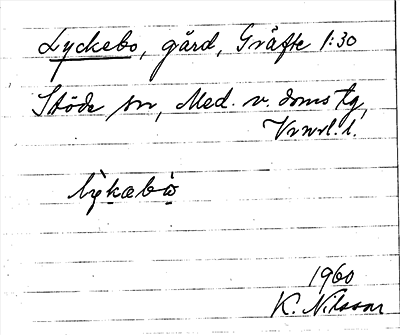 Lyckebo, gård, Gräfte 1:30
Stöde sn, Med. v. doms tg,
Vnrl. l.
lỳkæbò
1960
K. Nilsson